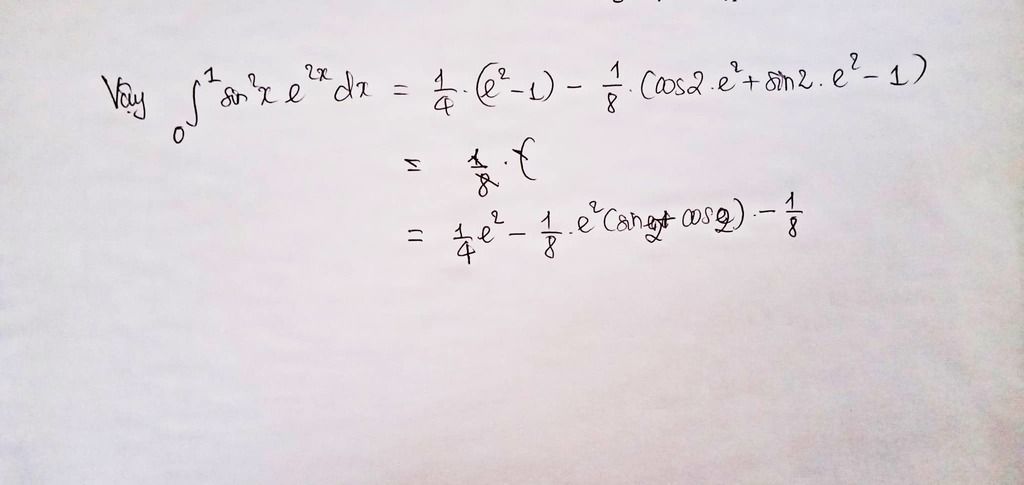 Vậy ∫₀¹ sin²x e²ˣ dx = 1/4 . (e² - 1) - 1/8 . (cos2 . e² + sin2 . e² - 1)
= 1/8 . (
= 1/4 e² - 1/8 . e² (sin2 + cos2) - 1/8